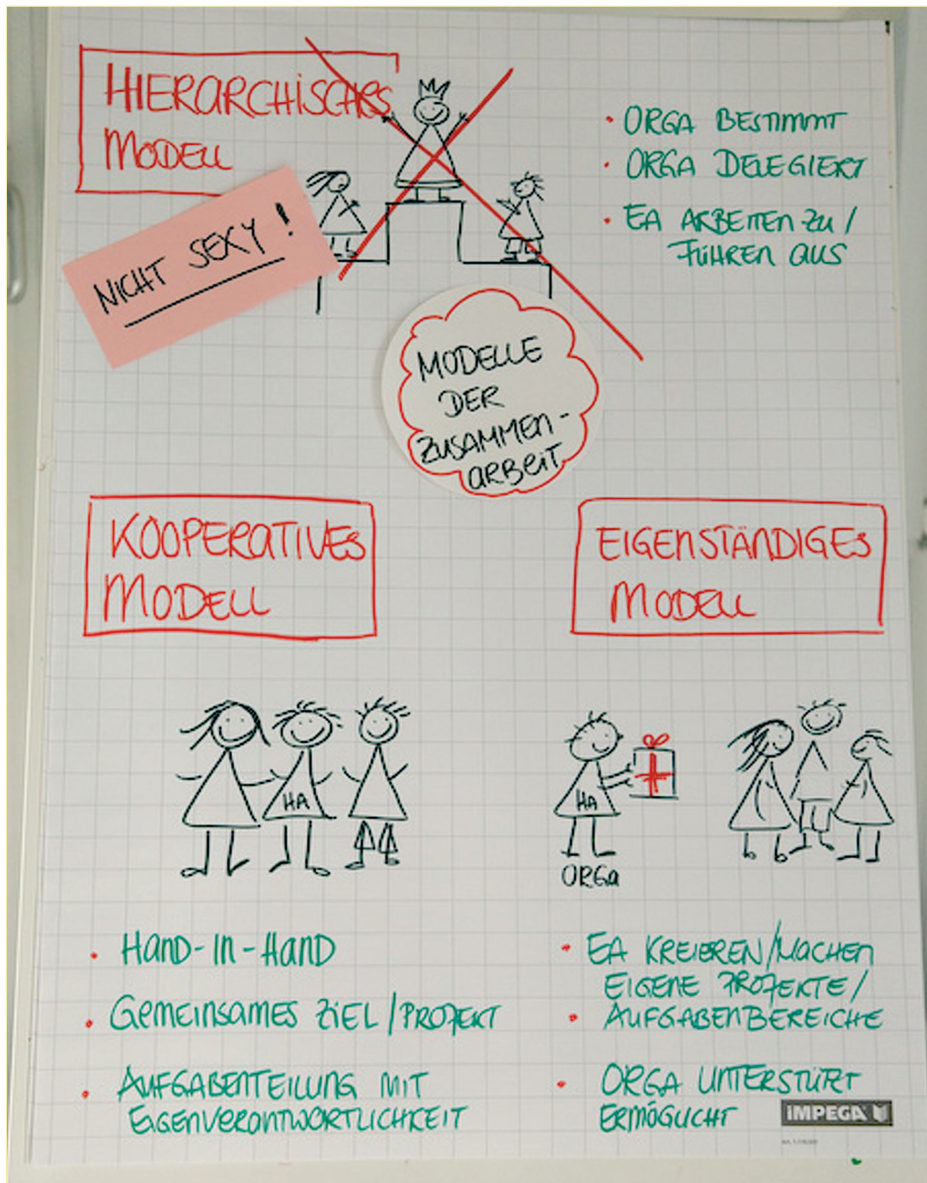 HIERARCHISCHES
MODELL
NICHT SEXY!
• ORGA BESTIMMT
• ORGA DELEGIERT
• EA ARBEITEN ZU /
FÜHREN AUS
MODELLE
DER
ZUSAMMEN-
ARBEIT
KOOPERATIVES
MODELL
HA
• HAND-IN-HAND
• GEMEINSAMES ZIEL / PROJEKT
• AUFGABENTEILUNG MIT
EIGENVERANTWORTLICHKEIT
EIGENSTÄNDIGES
MODELL
HA
ORGA
• EA KREIEREN/MACHEN
EIGENE PROJEKTE/
• AUFGABENBEREICHE
• ORGA UNTERSTÜTZT
ERMÖGLICHT
IMPEGA